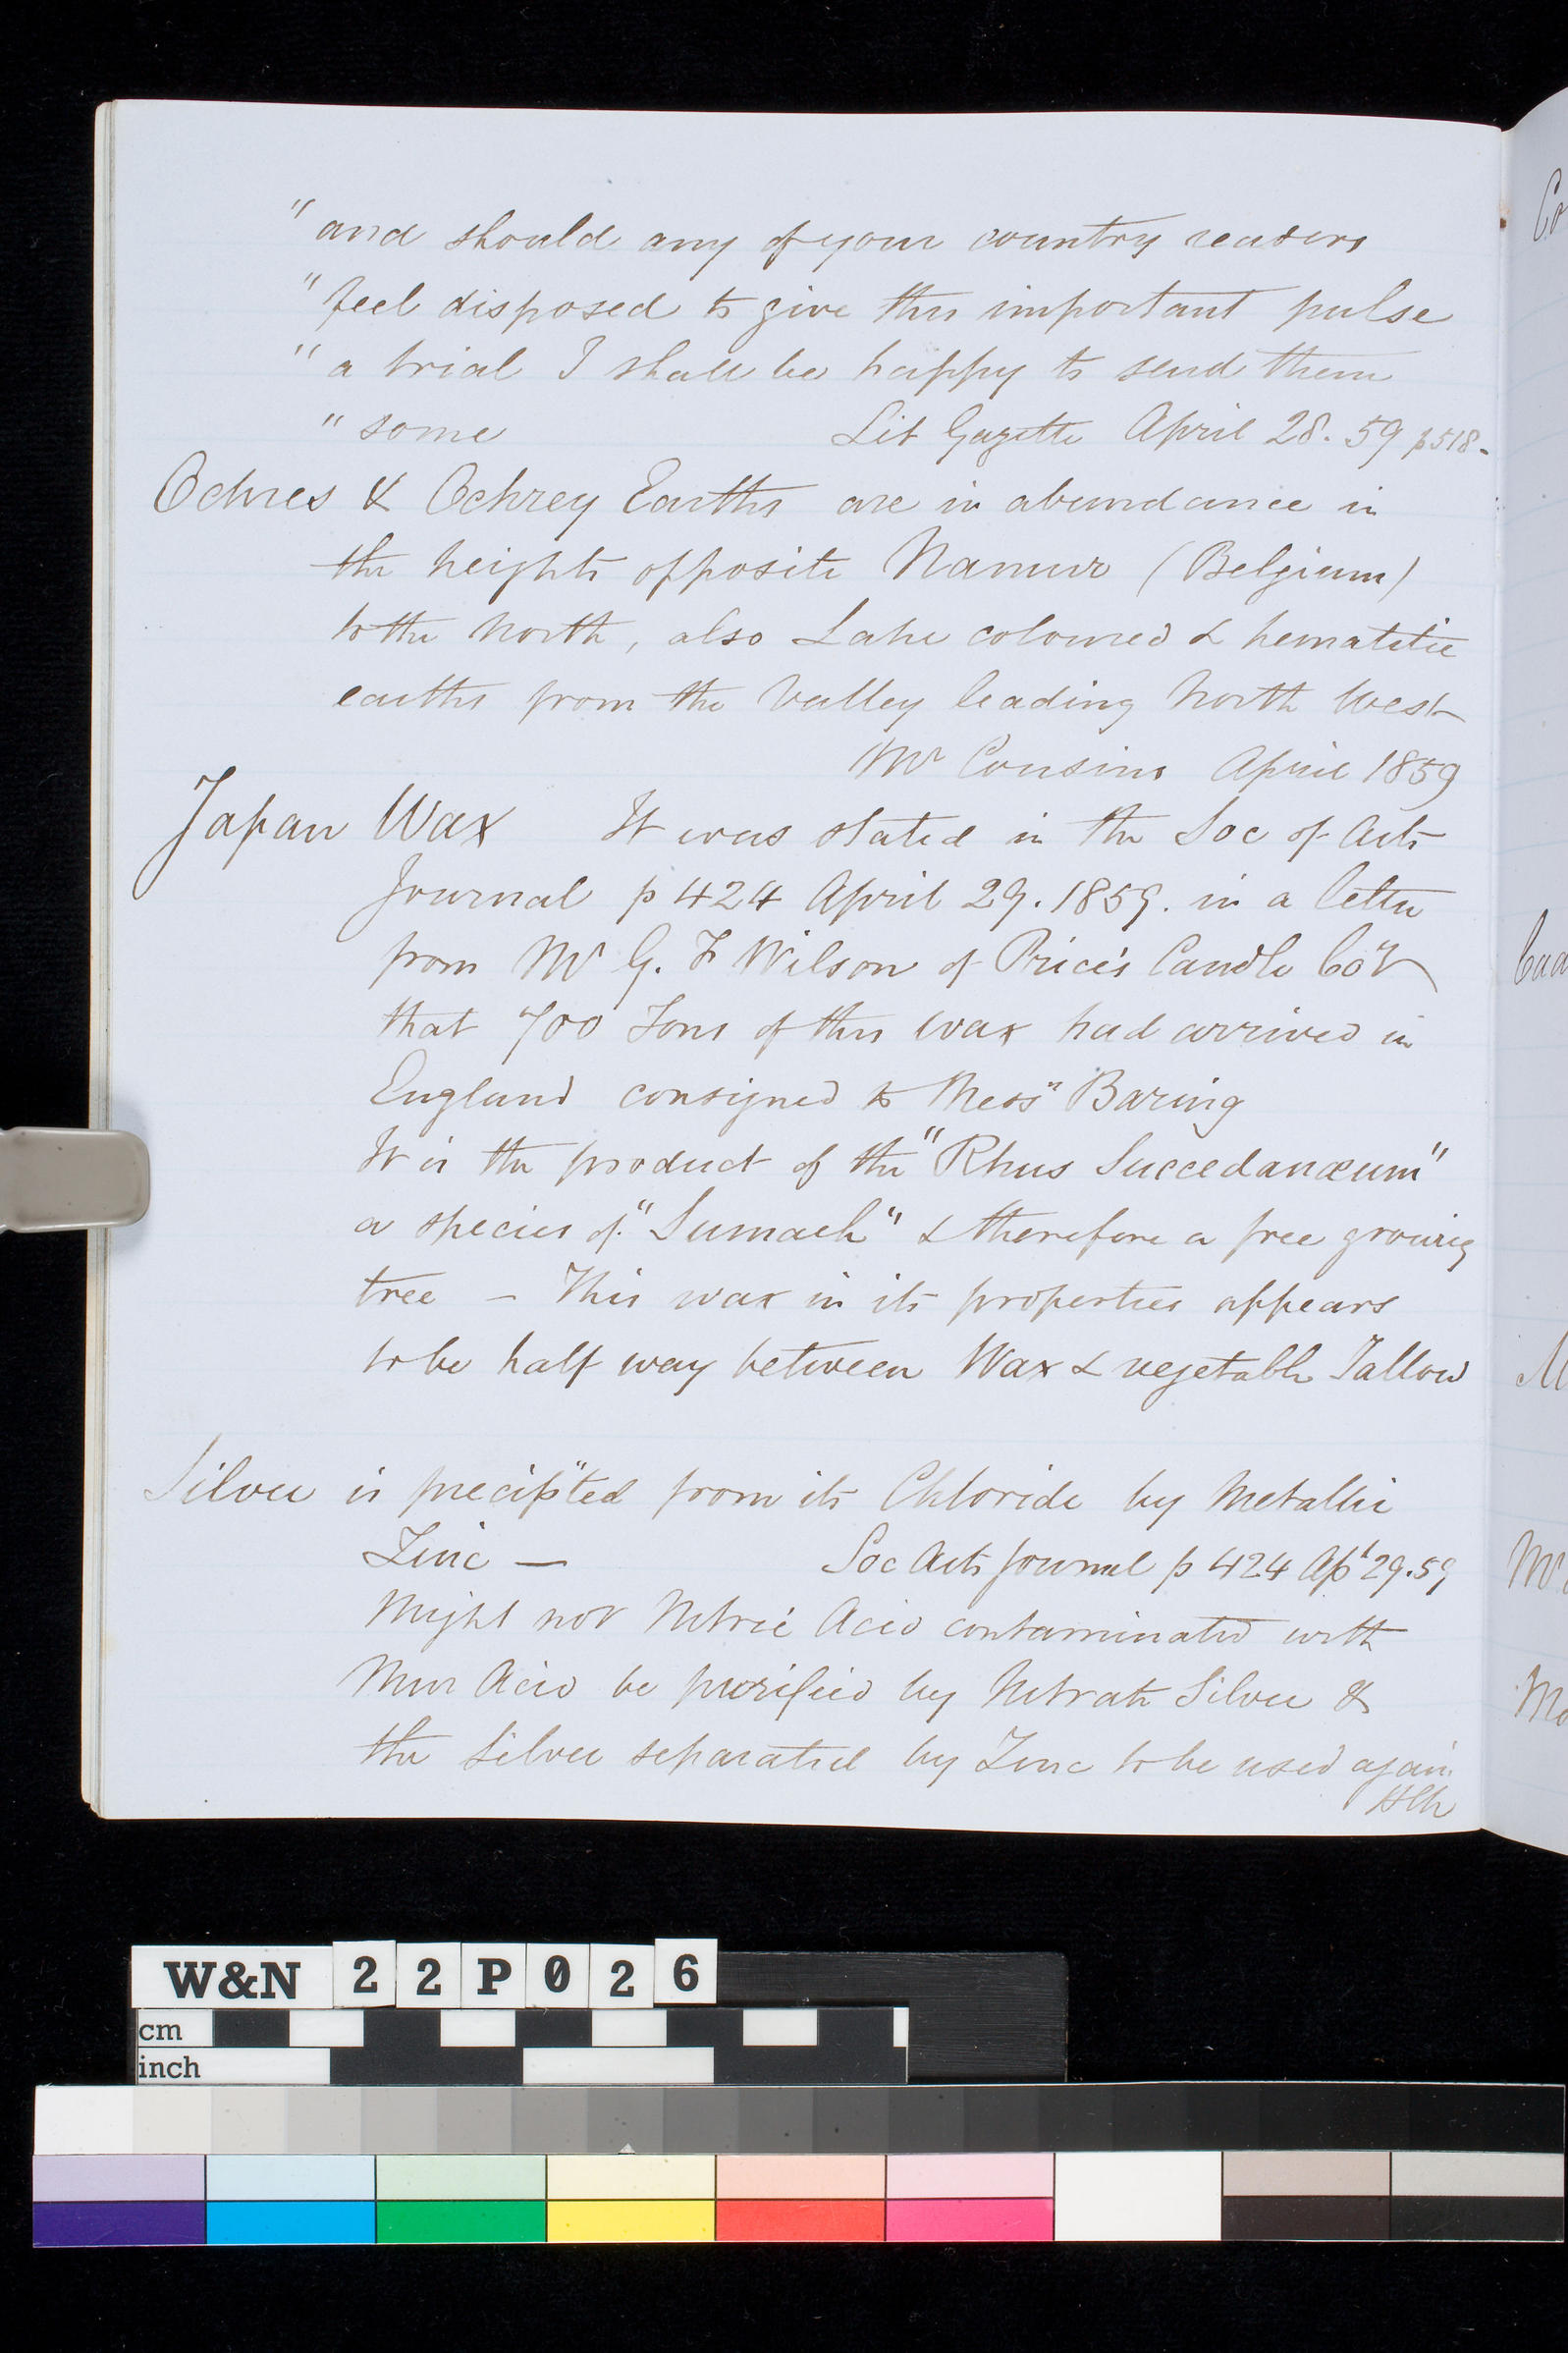 " and should any of your country readers
" feel disposed to give this important pulse
" a trial I shall be happy to send them
" some Lit Gazette April 28. 59 p518-
Ochres & Ochrey Earths are in abundance in
the heights opposite Namur (Belgium)
to the North, also Lake coloured & hematitic
earths from the Valley leading North West
Mr Cousins April 1859
Japan Wax It was stated in the Soc of Arts
Journal p 424 April 29. 1859. in a letter
from Mr G. F Wilson of Price's Candle Coy
that 700 Tons of this wax had arrived in
England consigned to Messrs Baring
It is the product of the "Rhus Succedanæum"
a species of "Sumach" & therefore a free growing
tree – This wax in its properties appears
to be half way between Wax & vegetable Tallow
Silver is precip"ted from its Chloride by Metallic
Zinc — Soc Arts Journal p 424 Apl 29.59
Might not Nitric Acid contaminated with
Mur Acid be purified by Nitrate Silver &
the silver separated by Zinc to be used again
W&N 22P026
cm
inch